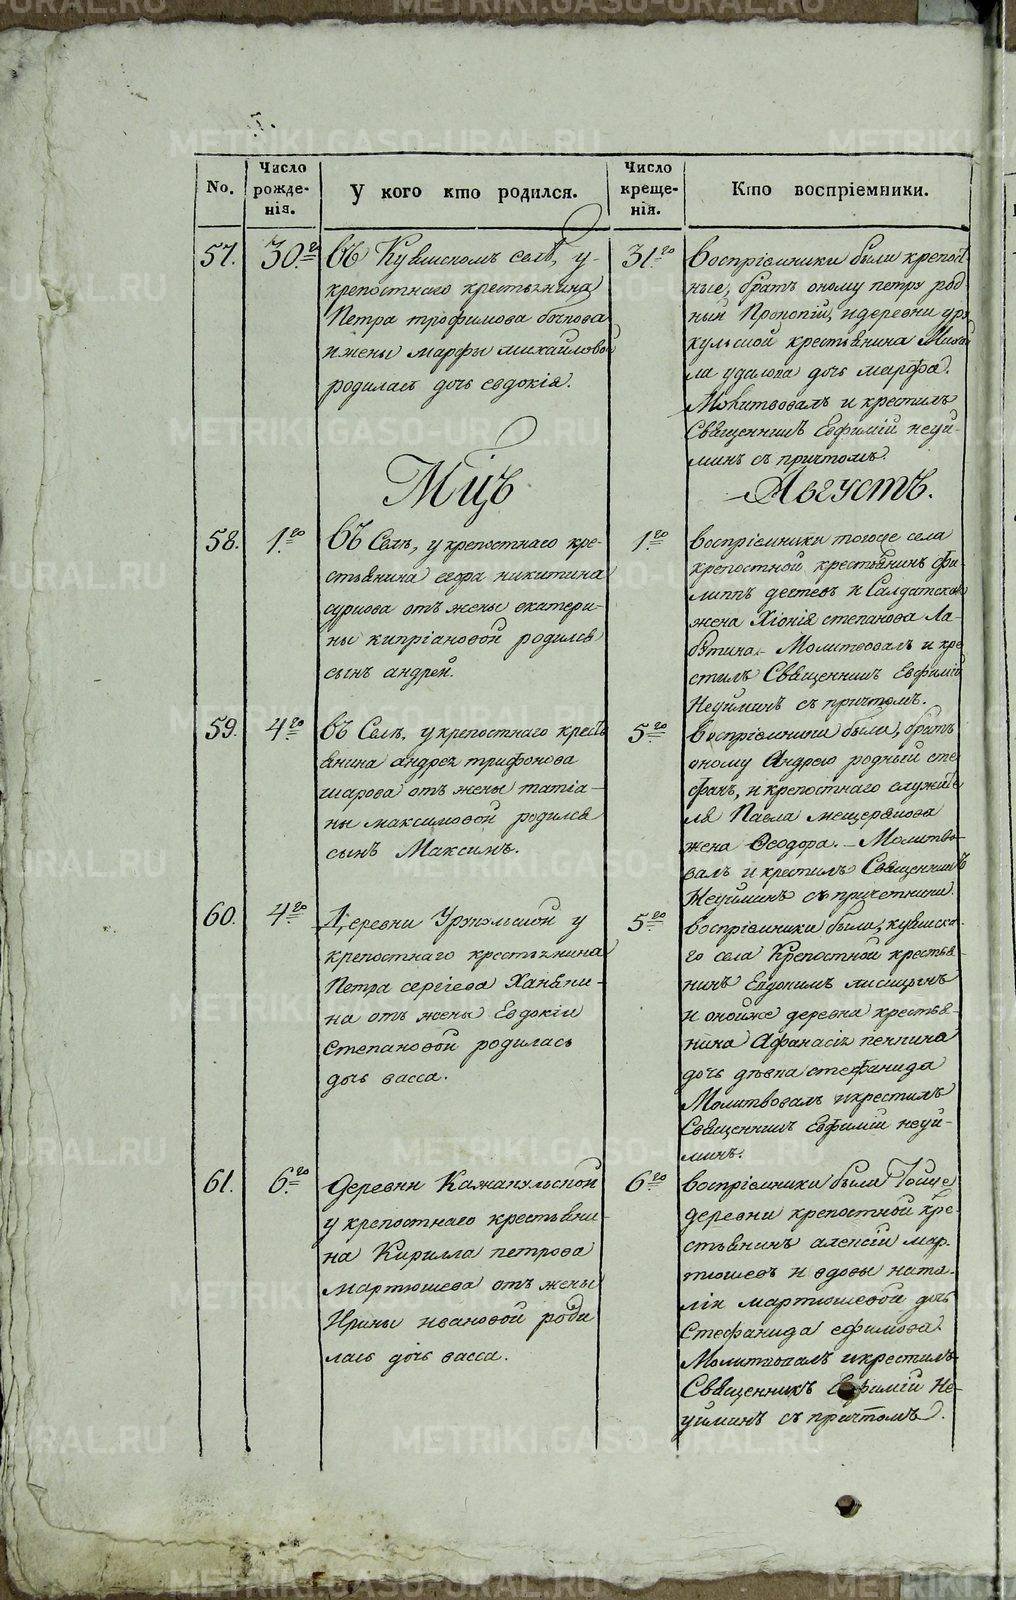 No.
Число рожденія.
У кого кто родился.
Число крещенія.
Кто воспріемники.
57.
30.го
въ Кувинскомъ селѣ, у
крепостнаго крестьянина
Петра трофимова
и жены марфы михайловой
родилась дочь евдокія.
31.го
воспріемники были крепост
ные, братъ оному петру род
ный Прокопій, и деревни
кульской крестьянина
ла удалова дочь марфа.
Молитвовалъ и крестилъ
Священникъ Евфимій неуй-
минъ съ причтомъ.
Мцъ
Августъ.
58.
1.го
въ Селѣ, у крепостнаго кре-
стьянина никитина
отъ жены екатери-
ны кипріановой родился
сынъ андрей.
1.го
воспріемники тогоже села
крепостной крестьянинъ фи-
липпъ и Салдатская
жена Хіонія степанова
Молитвовалъ и кре
стилъ Священникъ Евфимій
Неуйминъ съ причтомъ.
59.
4.го
въ Селѣ, у крепостнаго кресть
янина андрея трифонова
шарова отъ жены татіа-
ны максимовой родился
сынъ Максимъ.
5.го
воспріемники были, братъ
оному Андрею родный сте
фанъ, и крепостнаго служите
ля Павла мещерякова
жена Феодора. Молитво-
валъ и крестилъ Священникъ
Неуйминъ съ причетники.
60.
4.го
Деревни у
крепостнаго крестьянина
Петра сергіева Ханяки-
на отъ жены Евдокіи
Степановой родилась
дочь васса.
5.го
воспріемники были, кувинска-
го села Крепостной крестья-
нинъ Евдокимъ лисицынъ
и оной же деревни крестья-
нина Афанасія пенкина
дочь дѣвка стефанида
Молитвовалъ и крестилъ
Священникъ Евфимій неуй-
минъ.
61.
6.го
деревни Кажакульской
у крепостнаго крестьяни-
на Кирилла петрова
мартюшева отъ жены
Ирины ивановой роди
лась дочь васса.
6.го
воспріемники были Тойже
деревни крепостной кре-
стьянинъ алексій мар-
тюшевъ и вдовы ната-
ліи мартюшевой дочь
Стефанида ефимова.
Молитвовалъ и крестилъ
Священникъ Евфимій Не-
уйминъ съ причтомъ.
METRIKI.GASO-URAL.RU